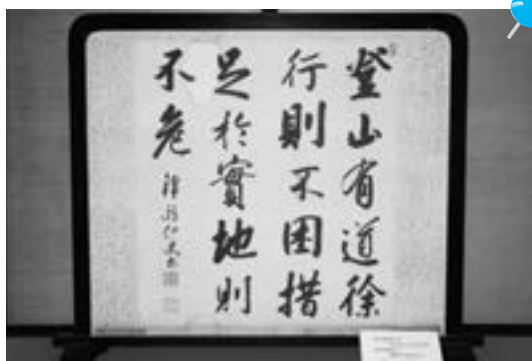 登山有道徐
行則不困措
足於實地則
不危